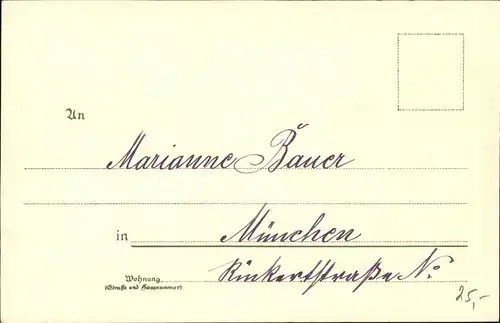 An
Marianne Bauer
in München
Wohnung
(Straße und Hausnummer)
Rückertstraße No
25,-